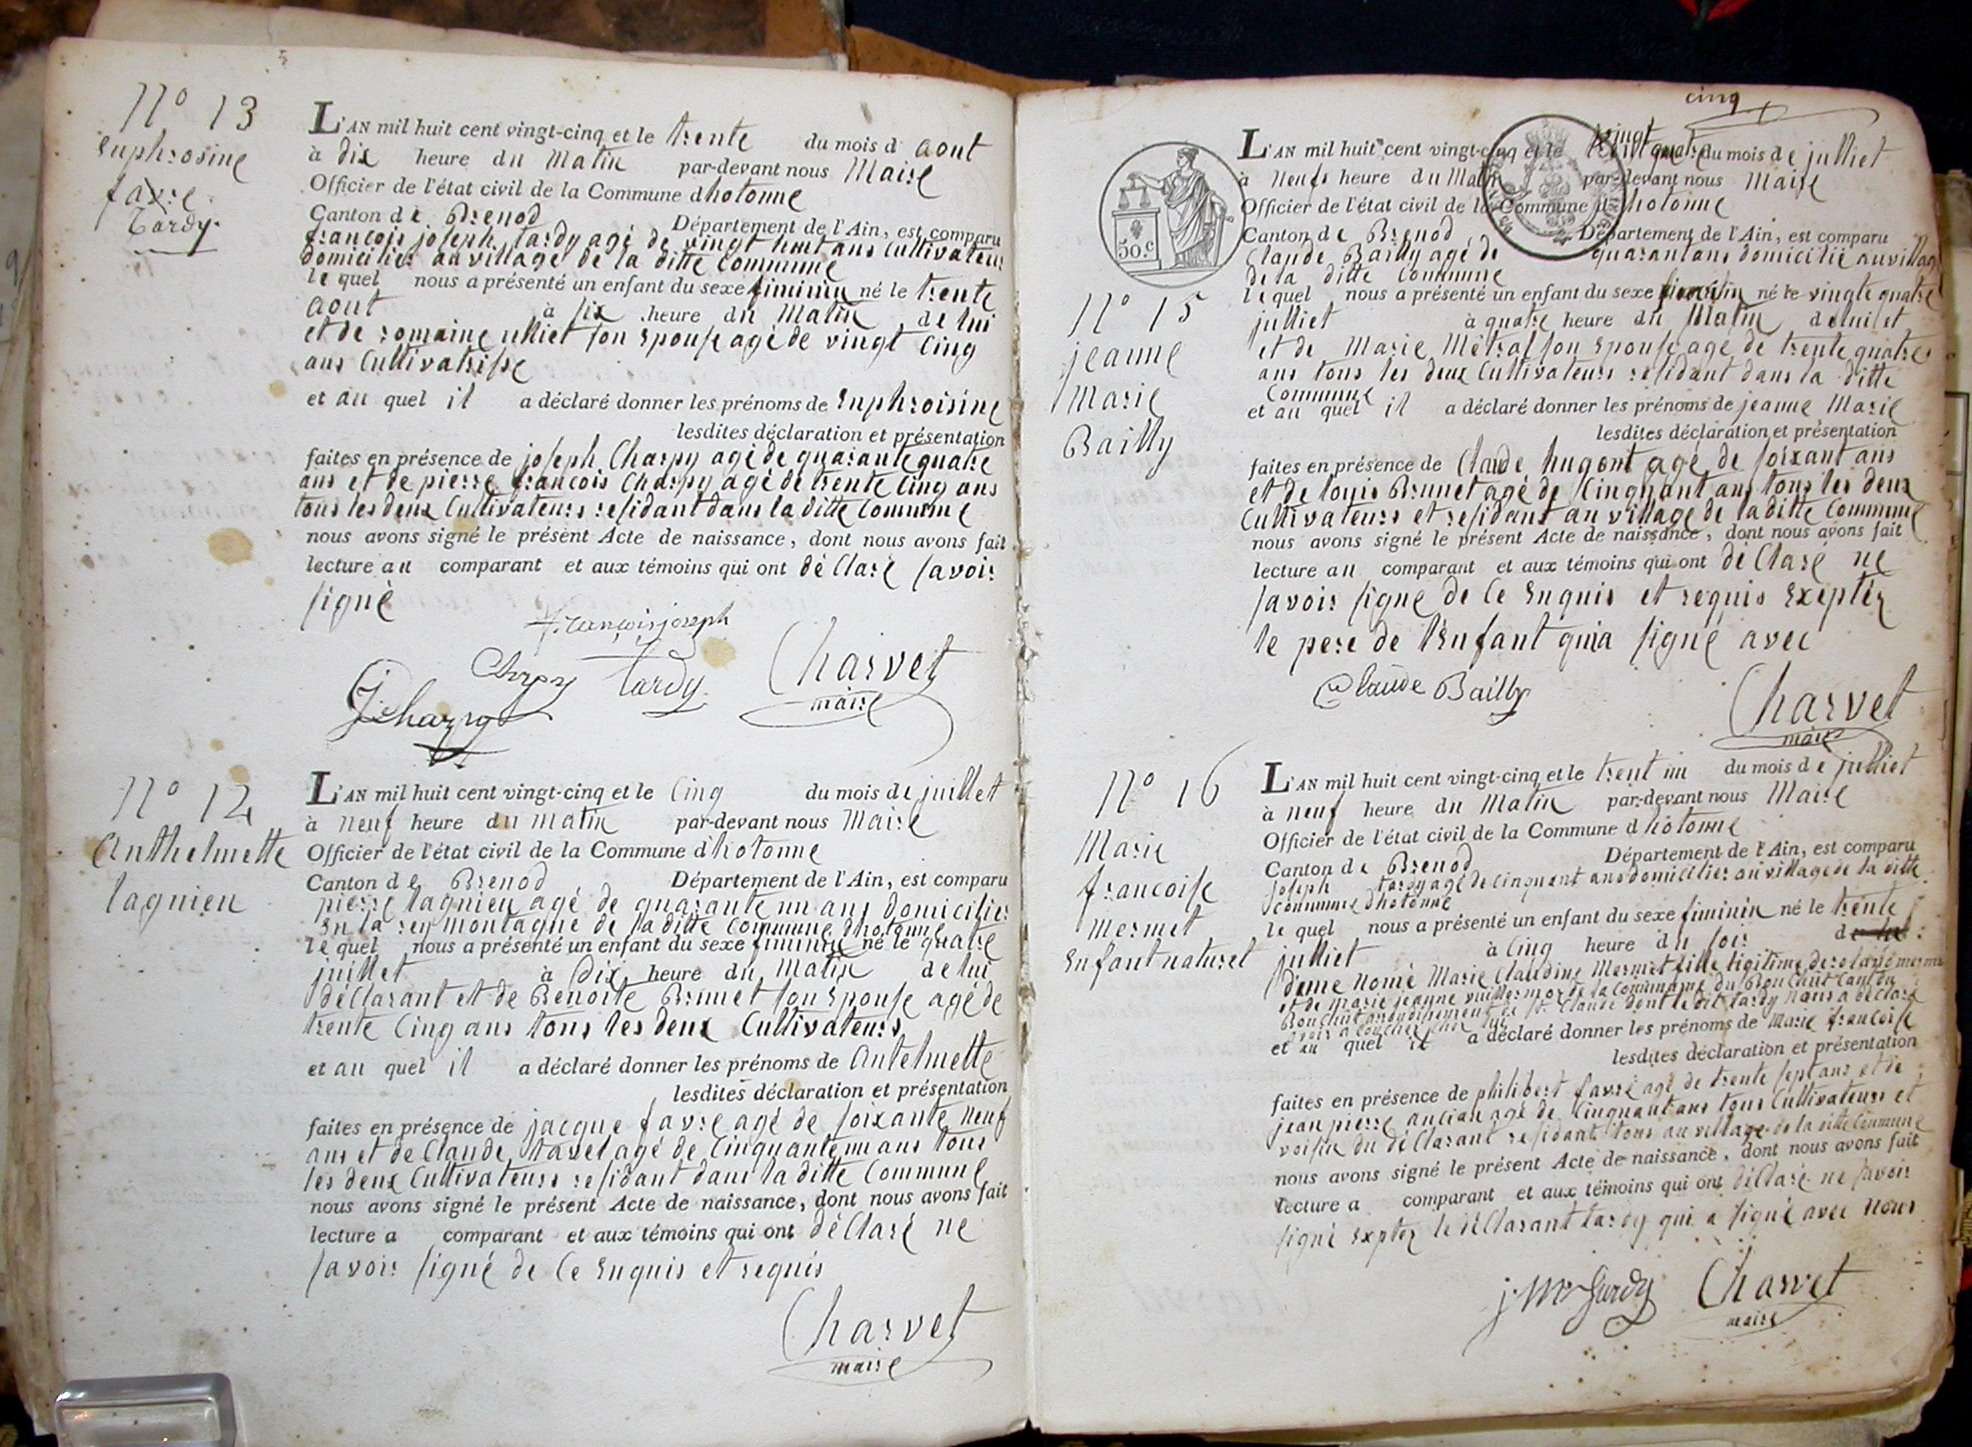 N° 13
Euphrosine
favre
Tardy
L'AN mil huit cent vingt-cinq et le trente du mois d aout
à dix heure du matin par-devant nous Maire
Officier de l'état civil de la Commune dhotonne
Canton de Brenod Département de l'Ain, est comparu
francois joseph tardy agé de vingt huit ans Cultivateur
domicilier au village de la ditte Commune
le quel nous a présenté un enfant du sexe fiminin né le trente
aout à six heure du matin de lui
et de romaine ulliet son Epouse agé de vingt Cinq
ans Cultivatrisse
et au quel il a déclaré donner les prénoms de Euphroisine
lesdites déclaration et présentation
faites en présence de joseph Charpy agé de quarante quatre
ans et de pierre francois Charpy agé de trente Cinq ans
tous les deux Cultivateurs residant dans la ditte Commune
nous avons signé le présent Acte de naissance, dont nous avons fait
lecture au comparant et aux témoins qui ont déClaré savoir
signé
francois joseph
Charpy tardy Charvet
maire
N° 14
Anthelmette
lagnieu
L'AN mil huit cent vingt-cinq et le Cinq du mois de juillet
à neuf heure du matin par-devant nous Maire
Officier de l'état civil de la Commune d'hotonne
Canton de Brenod Département de l'Ain, est comparu
pierre lagnieu agé de quarante un ans domicilier
En la rey montagne de la ditte Commune dhotonne
le quel nous a présenté un enfant du sexe fiminine né le quatre
juillet à Dix heure du matin de lui
déClarant et de Benoite Brunet son Epouse agé de
trente Cinq ans tous les deux Cultivateurs
et au quel il a déclaré donner les prénoms de Antelmette
lesdites déclaration et présentation
faites en présence de jacque favre agé de soixante neuf
ans et de Claude tavel agé de Cinquante un ans tous
les deux Cultivateurs residant dans la ditte Commune
nous avons signé le présent Acte de naissance, dont nous avons fait
lecture a comparant et aux témoins qui ont déClaré ne
savoir signé de Ce Enquis et requis
Charvet
maire
cinq
50.c
N° 15
jeanne
Marie
Bailly
L'AN mil huit cent vingt-cinq et le vingt quatre du mois de julliet
à neufs heure du Matin par-devant nous Maire
Officier de l'état civil de la Commune d hotonne
Canton de Brenod Département de l'Ain, est comparu
Claude Bailly agé de quarant ans domicilié au village
de la ditte Commune
le quel nous a présenté un enfant du sexe né le vingte quatre
julliet à quatre heure du Matin de lui et
et de Marie Métral son Epouse agé de trente quatre
ans tous les deux Cultivateurs residant dans la ditte
Commune
et au quel il a déclaré donner les prénoms de jeanne Marie
lesdites déclaration et présentation
faites en présence de Claude hugont agé de soixant ans
et de louis Brunet agé de Cinquant ans tous les deux
Cultivateurs et residant au village de la ditte Commune
nous avons signé le présent Acte de naissance, dont nous avons fait
lecture au comparant et aux témoins qui ont déClaré ne
savoir signé de Ce Enquis et requis Exeptér
le pere de l'Enfant quia signé avec
Claude Bailly Charvet
maire
N° 16
Marie
francoise
Mermet
Enfant naturel
L'AN mil huit cent vingt-cinq et le trent un du mois de julliet
à neuf heure du Matin par-devant nous Maire
Officier de l'état civil de la Commune d hotonne
Canton de Brenod Département de l'Ain, est comparu
joseph tardy agé de cinquant ans domicilier au village de la ditte
Commune dhotonne
le quel nous a présenté un enfant du sexe fiminin né le trente
julliet à Cinq heure du soir
dune nomé Marie Claudine Mermet fille ligitime de
et de Marie jeanne de la Commune du
arondisement de St. Claude dont le dit tardy nous a déClaré
avoir acouchée chez lui
et au quel il a déclaré donner les prénoms de Marie francoise
lesdites déclaration et présentation
faites en présence de philibert favre agé de trente sept ans et de
jean pierre ancian agé de Cinquant ans tous Cultivateurs et
voisin du déClarant residant tous au village de la ditte Commune
nous avons signé le présent Acte de naissance, dont nous avons fait
lecture a comparant et aux témoins qui ont déClaré ne savoir
signé Exptez le déClarant tardy qui a signé avec nous
Charvet
maire